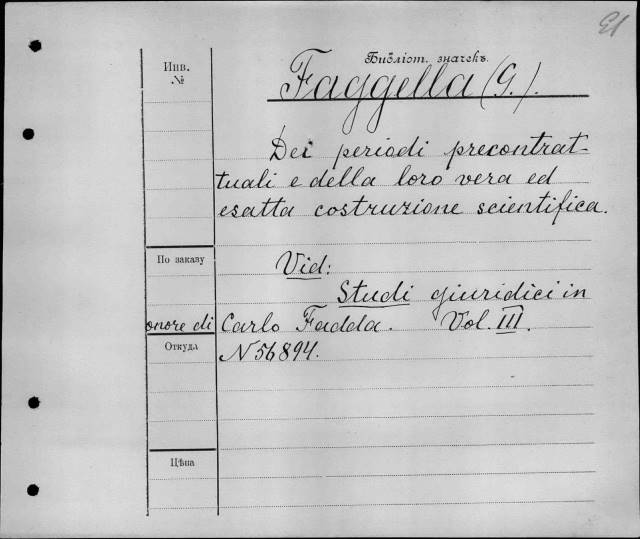 El
Библіот. значекъ.
Инв.
№
Faggella (G.).
Dei periodi precontrat-
tuali e della loro vera ed
esatta costruzione scientifica.
По заказу
Vid:
Studi giuridici in
onore di Carlo Fadda. Vol. III.
Откуда
N 56894.
Цѣна